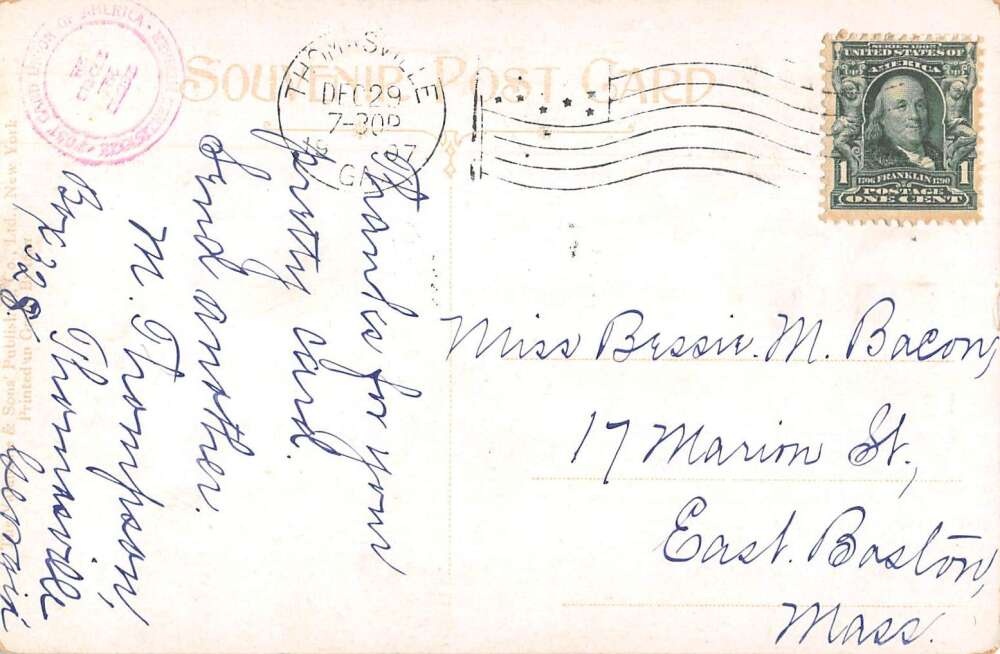 SOUVENIR POST CARD
POST CARD UNION OF AMERICA
THOMASVILLE
DEC 29
7-30P
GA
SERIES 1902
UNITED STATES OF
AMERICA
1706 FRANKLIN 1790
POSTAGE
1 ONE CENT 1
Thanks for your
pretty card.
Send another.
M. Thompson,
Box 328. Thomasville,
Georgia
Miss Bessie. M. Bacon,
17 Marion St.,
East. Boston,
Mass.
& Sons' Publish Co., Ltd., New York
Printed in